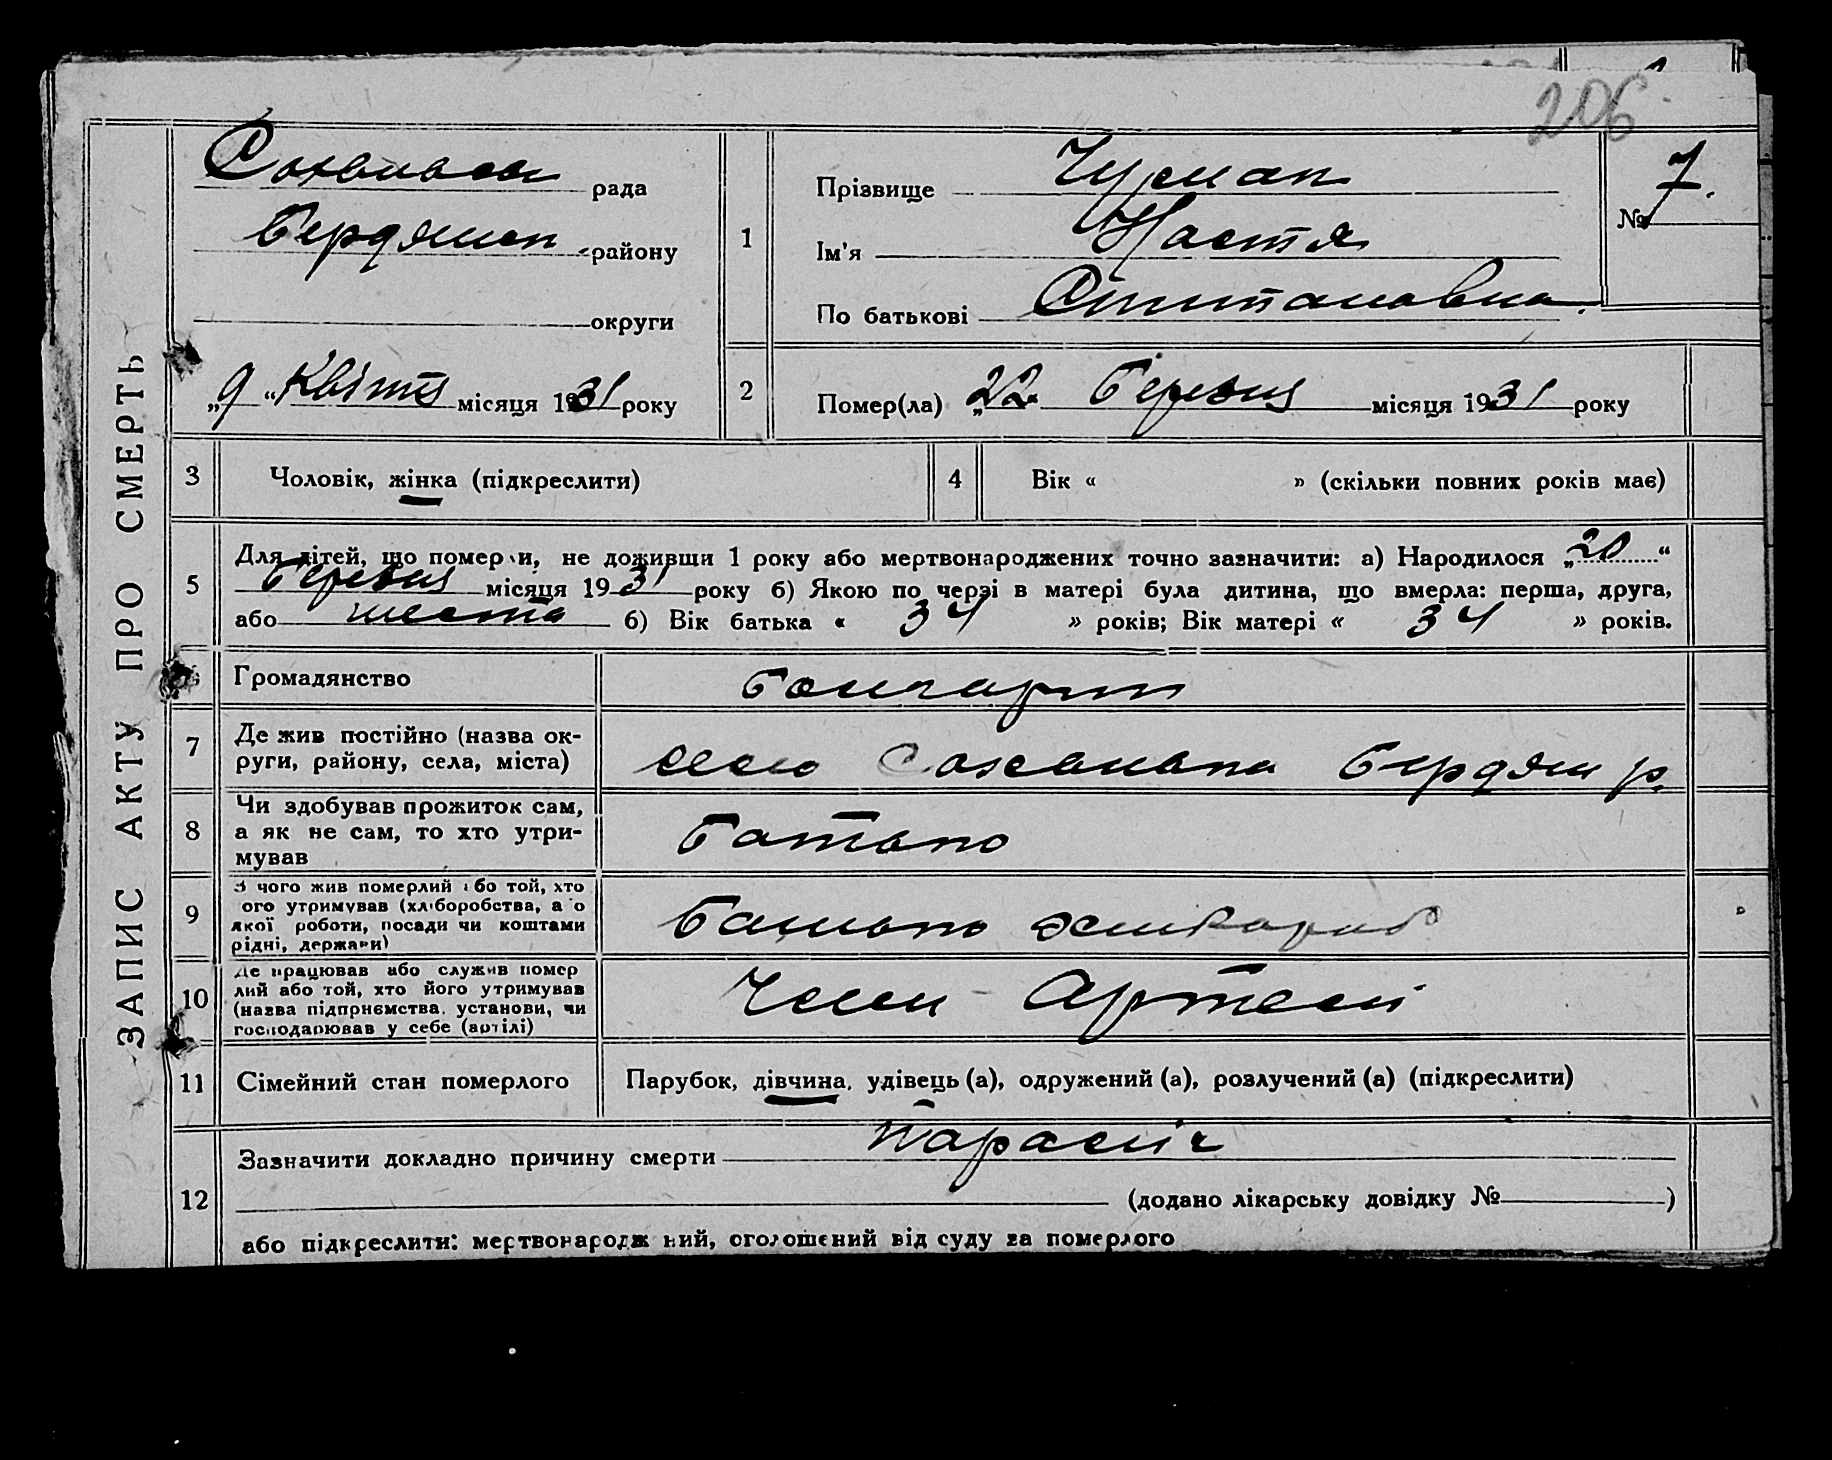 206
рада
Бердянськ району
округи
„9“ Квітня місяця 1931 року
ЗАПИС АКТУ ПРО СМЕРТЬ
1
Прізвище Чурман
Ім'я Настя
По батькові
№ 7.
2
Помер(ла) „22 Березня місяця 1931 року
3
Чоловік, жінка (підкреслити)
4
Вік « » (скільки повних років має)
5
Для дітей, що померли, не доживши 1 року або мертвонароджених точно зазначити: а) Народилося „20“
Березня місяця 1931 року б) Якою по черзі в матері була дитина, що вмерла: перша, друга,
або шеста б) Вік батька « 34 » років; Вік матері « 34 » років.
6
Громадянство
7
Де жив постійно (назва ок-
руги, району, села, міста)
село Бердян р.
8
Чи здобував прожиток сам,
а як не сам, то хто утри-
мував
Батько
9
З чого жив померлий або той, хто
його утримував (хліборобства, або
якої роботи, посади чи коштами
рідні, держави)
Батько
10
Де працював або служив помер
лий або той, хто його утримував
(назва підприємства, установи, чи
господарював у себе (артілі)
Член Артелі
11
Сімейний стан померлого
Парубок, дівчина, удівець (а), одружений (а), розлучений (а) (підкреслити)
12
Зазначити докладно причину смерти параліч
(додано лікарську довідку № )
або підкреслити: мертвонароджений, оголошений від суду за померлого